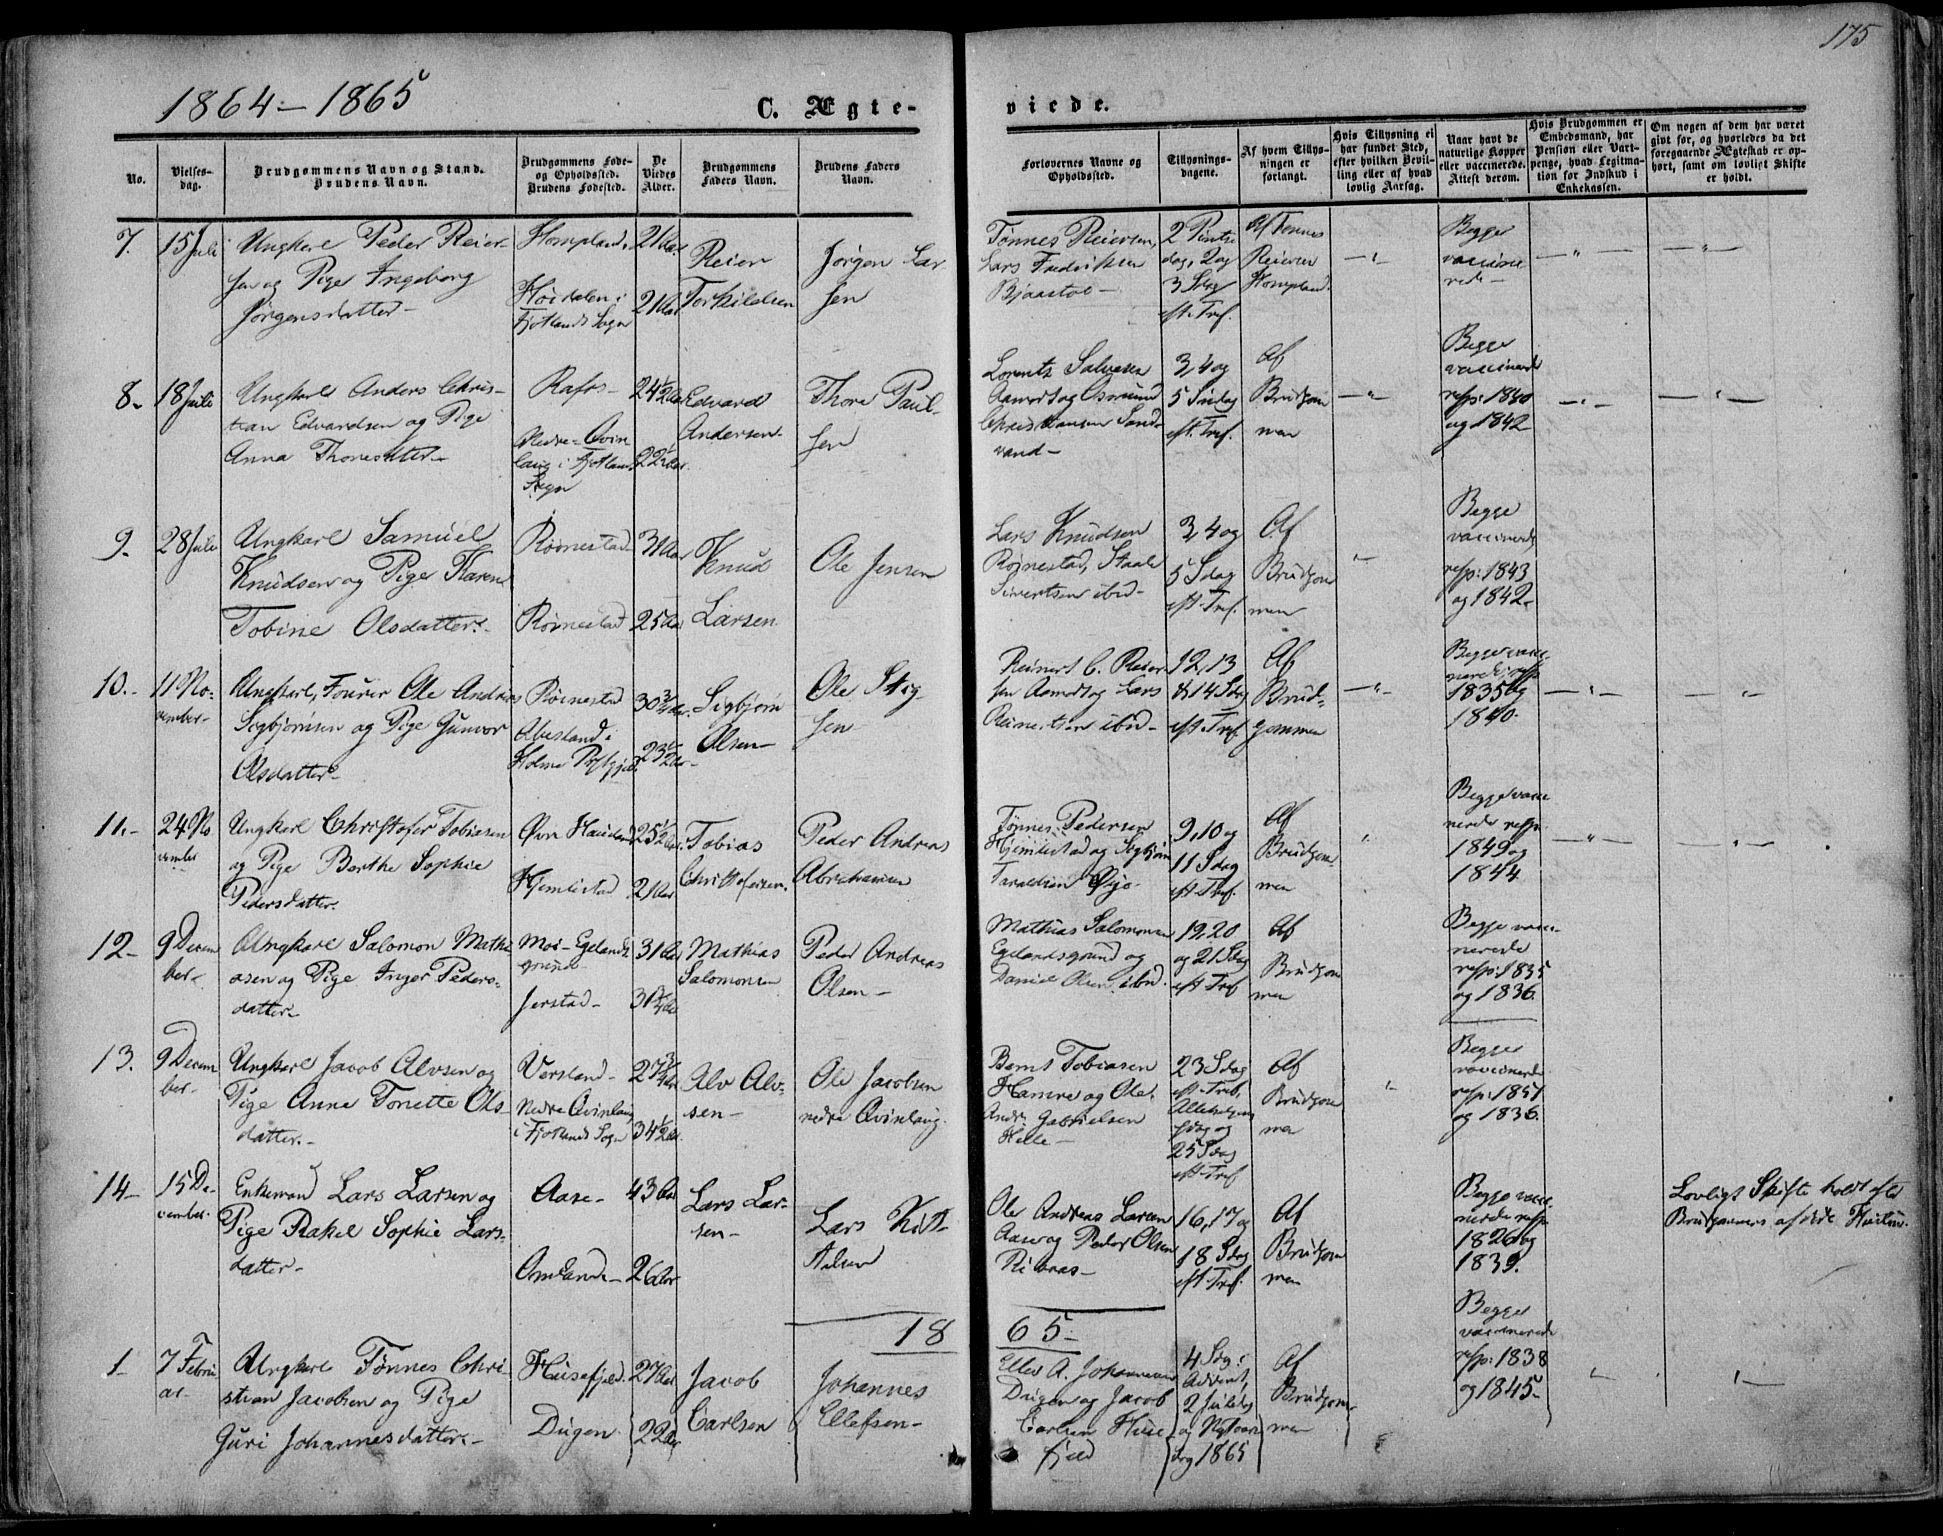 175
1864 – 1865
C. Ægte-
viede.
No.
Vielses-
dag.
Brudgommens Navn og Stand.
Brudens Navn.
Brudgommens Føde-
og Opholdssted.
Brudens Fødested.
De
Viedes
Alder.
Brudgommens
Faders Navn.
Brudens Faders
Navn.
Forlovernes Navne og
Opholdssted.
Tillysnings-
dagene.
Af hvem Tillys-
ningen er
forlangt.
Hvis Tillysning ei
har fundet Sted,
efter hvilken Bevil-
ling eller af hvad
lovlig Aarsag.
Naar havt de
naturlige Kopper
eller vaccinerede.
Attest derom.
Hvis Brudgommen er
Embedsmand, har
Pension eller Vart-
penge, hvad Legitima-
tion for Indskud i
Enkekassen.
Om nogen af dem har været
gift før, og hvorledes da det
foregaaende Ægteskab er op-
hørt, samt om lovligt Skifte
er holdt.
7.
15 Juli
Ungkarl Peder Reier-
sen og Pige Ingeborg
Jørgensdatter
Hompland.
Høidalen i
Fjotlands Sogn
21 Aar
21 Aar
Reier
Torkildsen
Jørgen Lar-
sen
Tønnes Reiersen,
Lars Fredriksen
2 Pintse
dag, 2 og
3 Sdag
eft. Tref.
Af Tønnes
Reiersen
Hompland.
Begge
vaccine
rede
8.
18 Juli
Ungkarl Anders Chris-
tian Edvardsen og Pige
Anna Thoresdtter
Rafos
Nedre-Qvin
laug i Fjotlands
Sogn
24½ Aar
22½ Aar
Edvard
Andersen.
Thore Paul-
sen
Lorents Salvesen
Aamodt og Osmund
Christiansen Sand-
vand
3, 4 og
5 Sndag
eft. Tref.
Af
Brudgom
men
Begge
vaccinerede
resp: 1840
og 1842
9.
28 Juli
Ungkarl Samuel
Knudsen og Pige Karen
Tobine Olsdatter.
Røinestad
Røinestad
31 Aar
25 Aar
Knud
Larsen
Ole Jensen
Lars Knudsen
Røinestad, Staale
Sivertsen ibid
3, 4 og
5 Sdag
eft. Tref.
Af
Brudgom
men
Begge
vaccinerede
resp: 1843
og 1842.
10.
11 No-
vember
Ungkarl, Fourer Ole Andreas
Sigbjørnsen og Pige Gunvor
Olsdatter
Røinestad
i
Holme Prstgjld.
30¾ Aar.
23½ Aar
Sigbjørn
Olsen
Ole Stig-
sen
Reinert C. Reier-
sen Aamodt og Lars
Reinertsen ibid
12, 13
& 14 Sdag
eft. Tref.
Af
Brud-
gommen
Begge vacci
nerede resp
1835 og
1840.
11.
24 No
vember
Ungkarl Christofer Tobiasen
og Pige Berthe Sophie
Pedersdatter.
Øvre
25½ Aar
21 Aar
Tobias
Christofersen.
Peder Andreas
Abrahamsen
Tønnes Pedersen
og Sigbjørn
Taraldsen Øye
9, 10 og
11 Sdag
eft. Tref.
Af
Brudgom
men
Begge vacci
nerede resp:
1849 og
1844
12
9 Decem
ber
Ungkarl Salomon Mathi
asen og Pige Inger Peders-
datter
Moi-Egelands
grund
Jerstad
31 Aar
Mathias
Salomonsen
Peder Andreas
Olsen
Mathias Salomonsen
Egelandsgrund og
Daniel Olsen ibid.
19, 20
og 21 Sdag
eft. Tref.
Af
Brudgom
men
Begge vacci
nerede
resp: 1835
og 1836.
13.
9 Decem
ber
Ungkarl Jacob Alvsen og
Pige Anne Tonette Ols-
datter.
Versland
Nedre Qvinlaug
i Fjotlands Sogn
27¾ Aar
34½ Aar.
Alv Alv-
sen
Ole Jacobsen
nedre Qvinlaug.
Bernt Tobiasen
Hamre og Ole
Andr. Gabrielsen
Helle
23 Sdag
eft. Tref.,
Allehelgens
dag og
25 Sdag
eft. Tref
Af
Brudgom
men
Begge
vaccinerede
resp: 1851
og 1836.
14
15 De-
cember.
Enkemand Lars Larsen og
Pige Rakel Sophie Lars-
datter
Aase
Omland
43 Aar
26 Aar
Lars Lar-
sen
Lars
Ole Andreas Larsen
Aase og Peder Olsen
16, 17 og
18 Sdag
eft. Tref.
Af
Brudgom
men
Begge vacci
nerede resp
1826 og
1839.
Lovligt Skifte holdt efter
Brudgommens afdøde Hustru.
18
65
1
7 Febru
ar
Ungkarl Tønnes Chri-
stian Jacobsen og Pige
Guri Johannesdatter.
Husefjeld.
Dugen
27 Aar
22 Aar
Jacob
Carlsen
Johannes
Ellefsen
Ellef A. Johannesen
Dugen og Jacob
Carlsen Huse
fjeld
4 Sdg i
Advent,
2 Juledag
og Nytaars
dag 1865
Af
Brudgom
men
Begge
vaccinerede
resp: 1838
og 1845